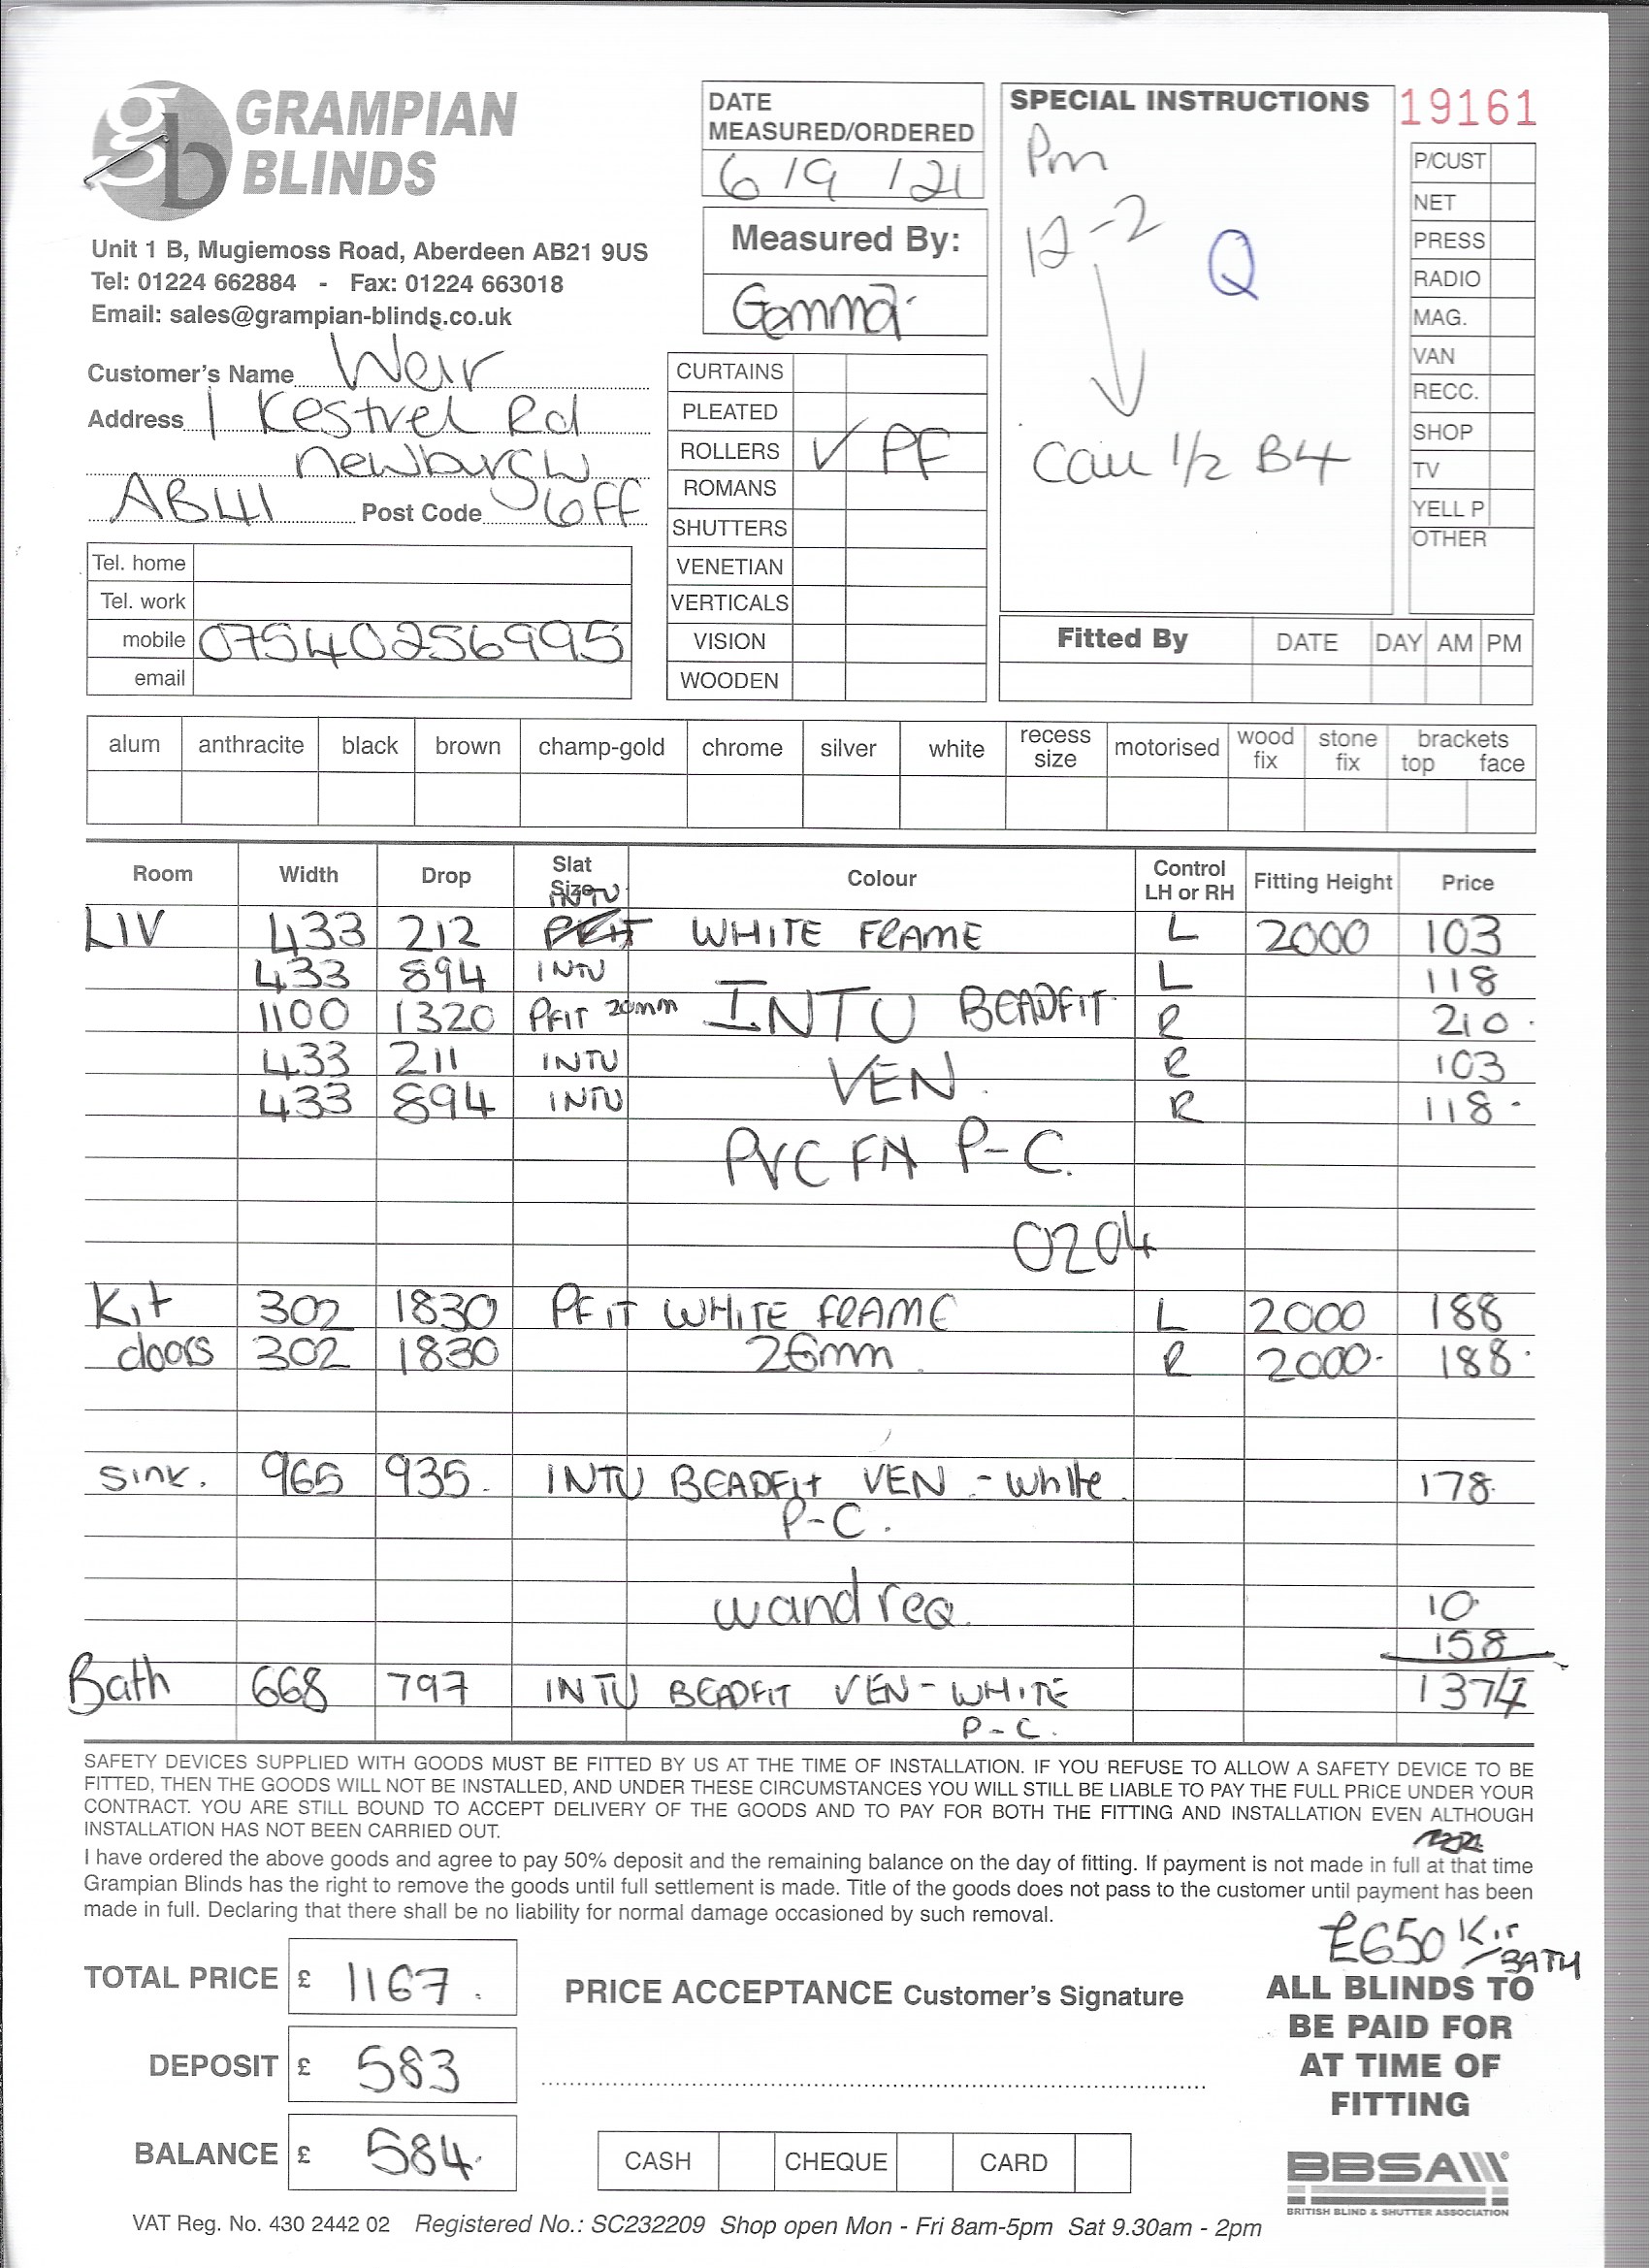 GRAMPIAN
BLINDS
gb
Unit 1 B, Mugiemoss Road, Aberdeen AB21 9US
Tel: 01224 662884 - Fax: 01224 663018
Email: sales@grampian-blinds.co.uk
DATE
MEASURED/ORDERED
6/9/21
Measured By:
Gemma
SPECIAL INSTRUCTIONS
Pm
12-2
Q
Call 1/2 B4
19161
P/CUST
NET
PRESS
RADIO
MAG.
VAN
RECC.
SHOP
TV
YELL P
OTHER
Customer's Name Weir
Address 1 Kestrel Rd
Newburgh
AB41 Post Code 6FF
Tel. home
Tel. work
mobile 07540256995
email
CURTAINS
PLEATED
ROLLERS ✓ PF
ROMANS
SHUTTERS
VENETIAN
VERTICALS
VISION
WOODEN
Fitted By DATE DAY AM PM
alum anthracite black brown champ-gold chrome silver white recess size motorised wood fix stone fix brackets top face
Room Width Drop Slat Size Colour Control LH or RH Fitting Height Price
INTU
LIV 433 212 WHITE FRAME L 2000 103
433 894 INTU L 118
1100 1320 PFIT 20mm INTU BEADFIT R 210
433 211 INTU VEN R 103
433 894 INTU R 118
PVC FN P-C.
0204
Kit 302 1830 PFIT WHITE FRAME L 2000 188
doors 302 1830 26mm R 2000 188
Sink. 965 935 INTU BEADFIT VEN - White 178
P-C.
wand req. 10
158
Bath 668 797 INTU BEADFIT VEN - WHITE 1374
P-C.
SAFETY DEVICES SUPPLIED WITH GOODS MUST BE FITTED BY US AT THE TIME OF INSTALLATION. IF YOU REFUSE TO ALLOW A SAFETY DEVICE TO BE
FITTED, THEN THE GOODS WILL NOT BE INSTALLED, AND UNDER THESE CIRCUMSTANCES YOU WILL STILL BE LIABLE TO PAY THE FULL PRICE UNDER YOUR
CONTRACT. YOU ARE STILL BOUND TO ACCEPT DELIVERY OF THE GOODS AND TO PAY FOR BOTH THE FITTING AND INSTALLATION EVEN ALTHOUGH
INSTALLATION HAS NOT BEEN CARRIED OUT.
I have ordered the above goods and agree to pay 50% deposit and the remaining balance on the day of fitting. If payment is not made in full at that time
Grampian Blinds has the right to remove the goods until full settlement is made. Title of the goods does not pass to the customer until payment has been
made in full. Declaring that there shall be no liability for normal damage occasioned by such removal.
£650 Kit/BATH
TOTAL PRICE £ 1167.
DEPOSIT £ 583
BALANCE £ 584.
PRICE ACCEPTANCE Customer's Signature
CASH CHEQUE CARD
ALL BLINDS TO
BE PAID FOR
AT TIME OF
FITTING
BBSA
BRITISH BLIND & SHUTTER ASSOCIATION
VAT Reg. No. 430 2442 02 Registered No.: SC232209 Shop open Mon - Fri 8am-5pm Sat 9.30am - 2pm